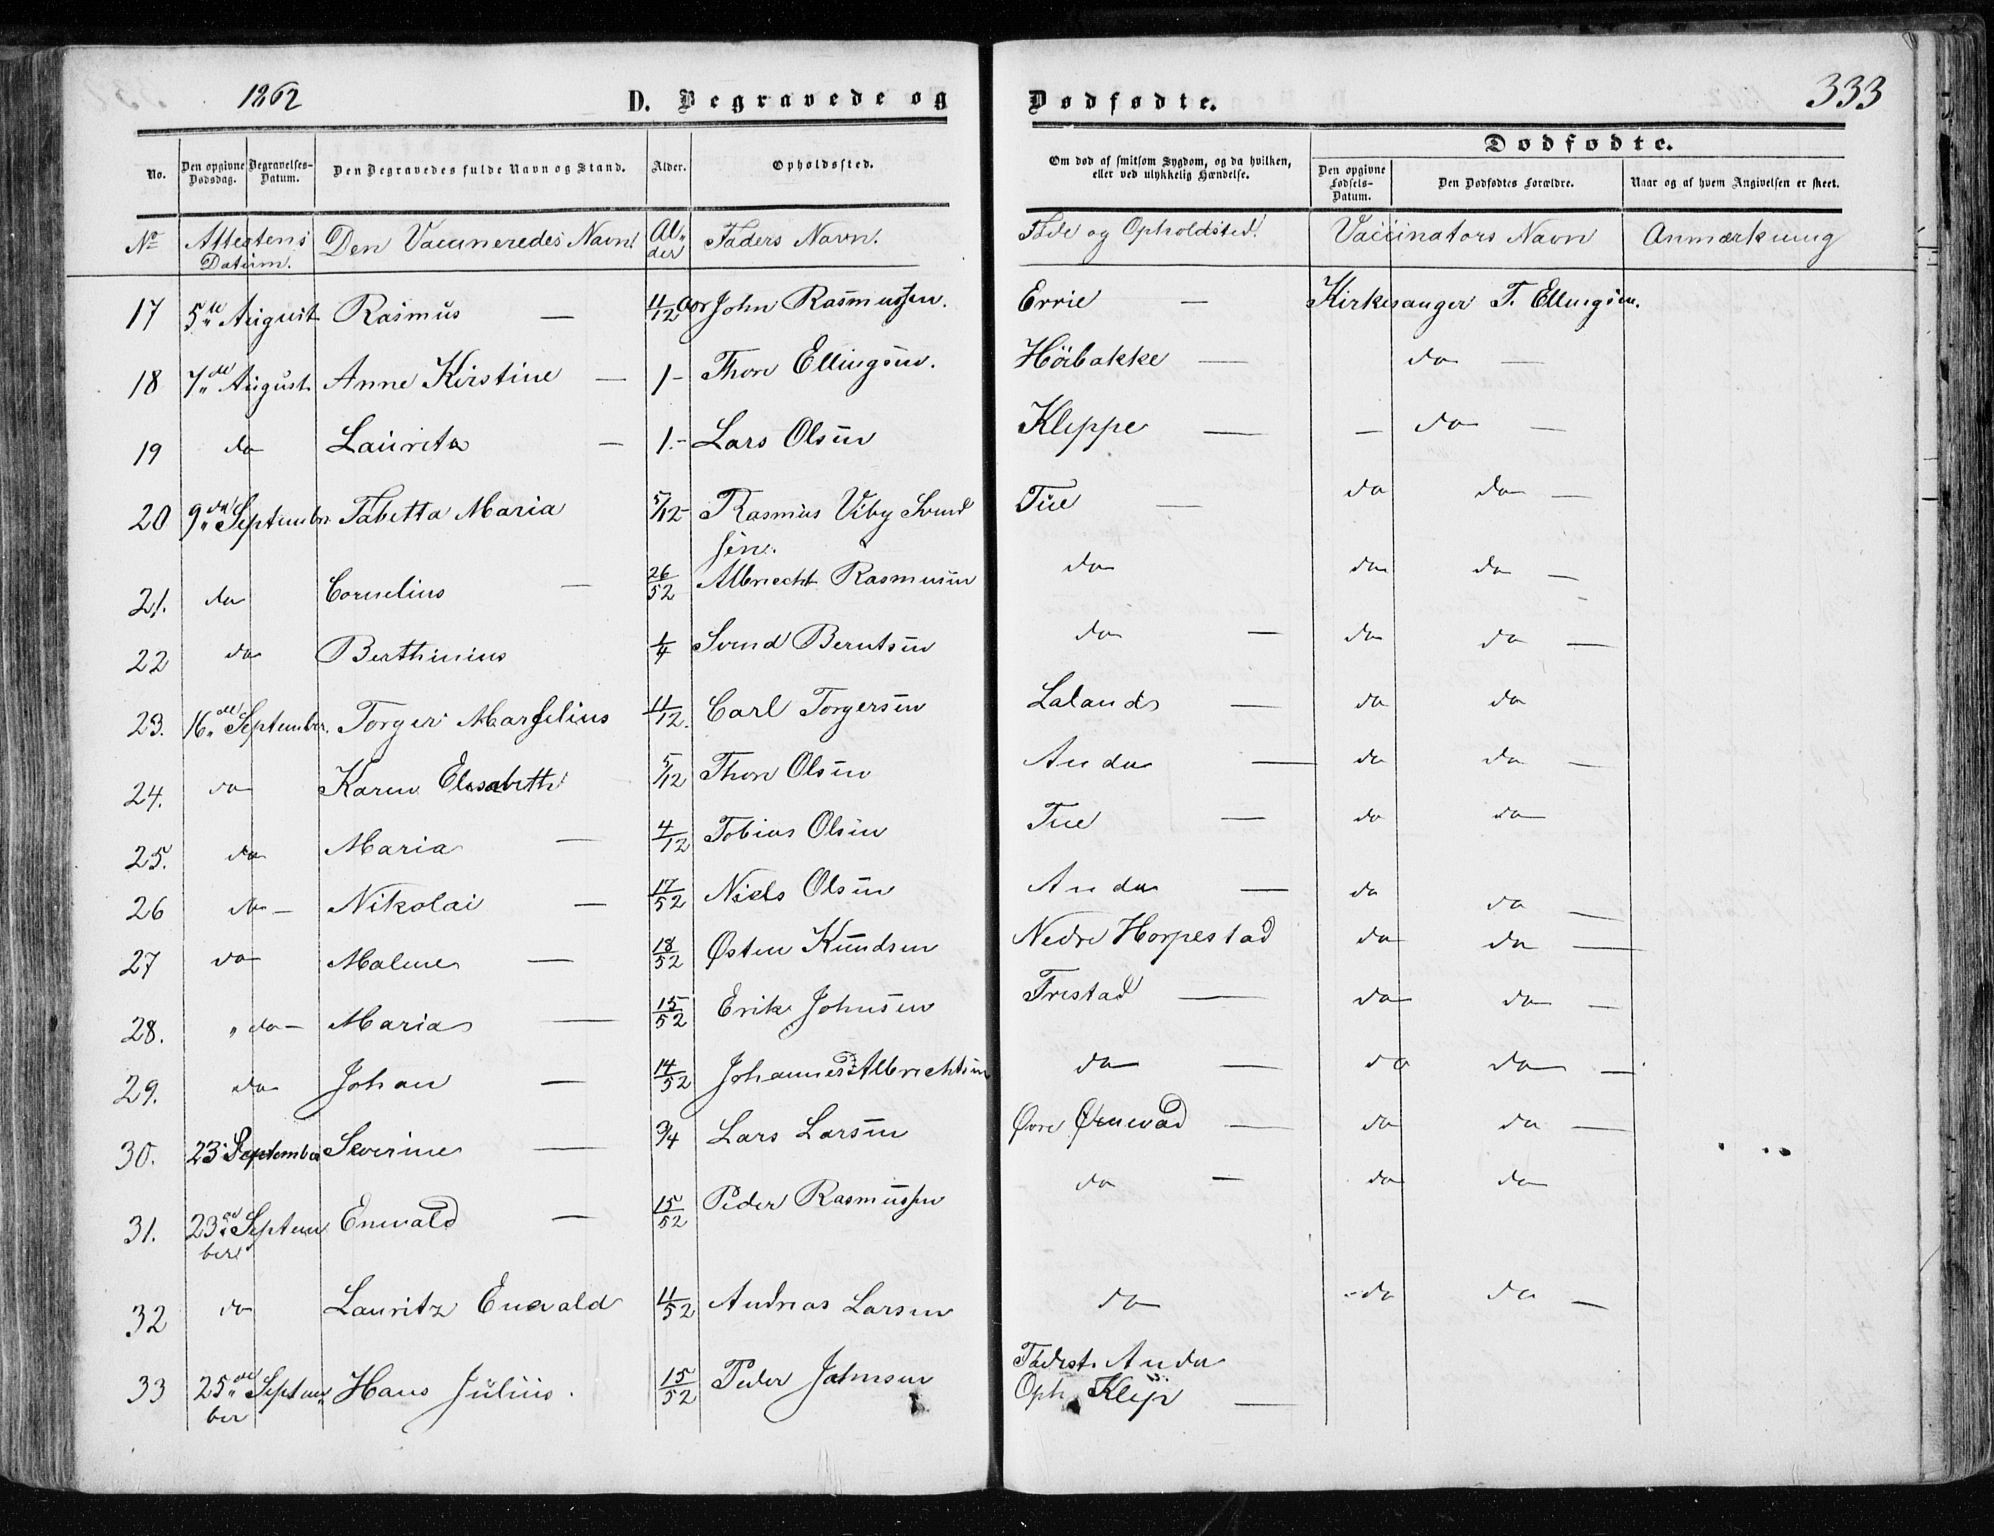 1862 D. Begravede og Dødfødte. 333
Dødfødte.
No. Den opgivne Dødsdag. Begravelses-Datum. Den Begravedes fulde Navn og Stand. Alder. Opholdssted. Om død af smitsom Sygdom, og da hvilken, eller ved ulykkelig Hændelse. Den opgivne Fødsels-Datum. Den Dødfødtes Forældre. Naar og af hvem Angivelsen er skeet.
No Attestens Datum. Den Vaccineredes Navn Alder Faders Navn. Føde og Opholdsted. Vaccinators Navn Anmærkning
17 5te August Rasmus — 11/12 Aar John Rasmussen. Errie — Kirkesanger T. Ellingsen.
18 7de August Anne Kirstine — 1 - Thore Ellingsen. Höibakke — do —
19 do Laurita — 1.- Lars Olsen Kleppe — — do —
20 9de September Tabetta Maria 5/12 - Rasmus Viby Svend Tue — do do —
sen.
21. do Cornelius — 26/52 Albrecht Rasmusen do do do —
22 do Berthinius 1/4 Svend Berntsen do — do do —
23. 16de September. Torger Marselius 11/12. Carl Torgersen Lalands — do do
24. do Karen Elisabeth 5/12 Thore Olsen Anda — do do —
25. do Maria — 4/12 Tobias Olsen Tue — do do —
26 do - Nikolai — 17/52 Niels Olsen Anda — do do —
27 do Malene — 18/52 Østen Knudsen Nedre Horpestad do do —
28. " do - Maria — 15/52 Erik Johnsen Frestad — do do —
29. do Johan — 14/52 Johannes Albrechtsen do — do do —
30. 23 September Severine — 3/4 Lars Larsen Øvre Øxnevad — do do —
31. 23de Septem Enevald — 15/52 Peder Rasmussen do — do do
ber
32 do Lauritz Enevald 11/52 Andreas Larsen do - do do —
33 25de Septem Hans Julius. 15/52 Peder Johnsen Fødest. Anda
ber Oph. Klep —